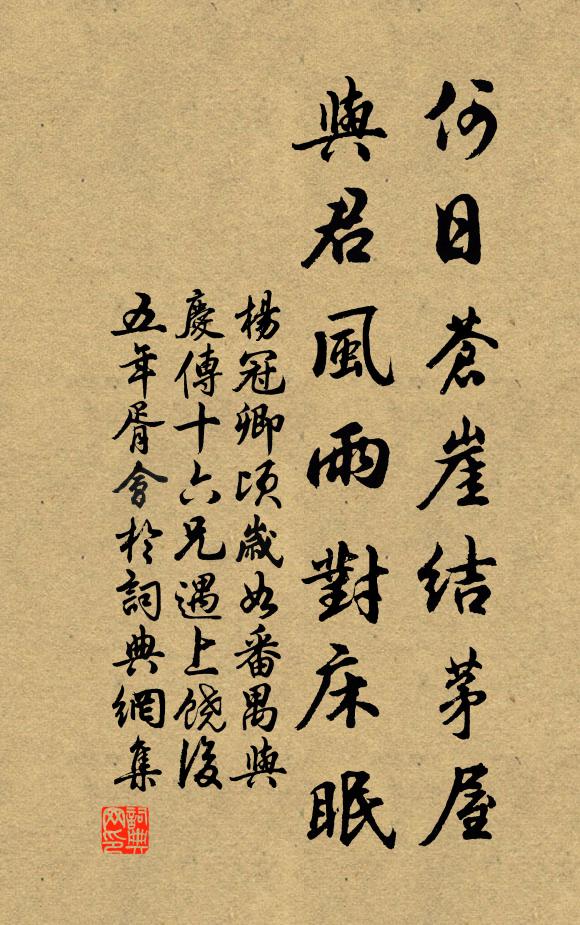 何日蒼崖結茅屋
與君風雨對床眠
楊冠卿頃歲如番禺與
慶傳十六兄遇上饒後
五年胥會於詞典網集
詞典網印